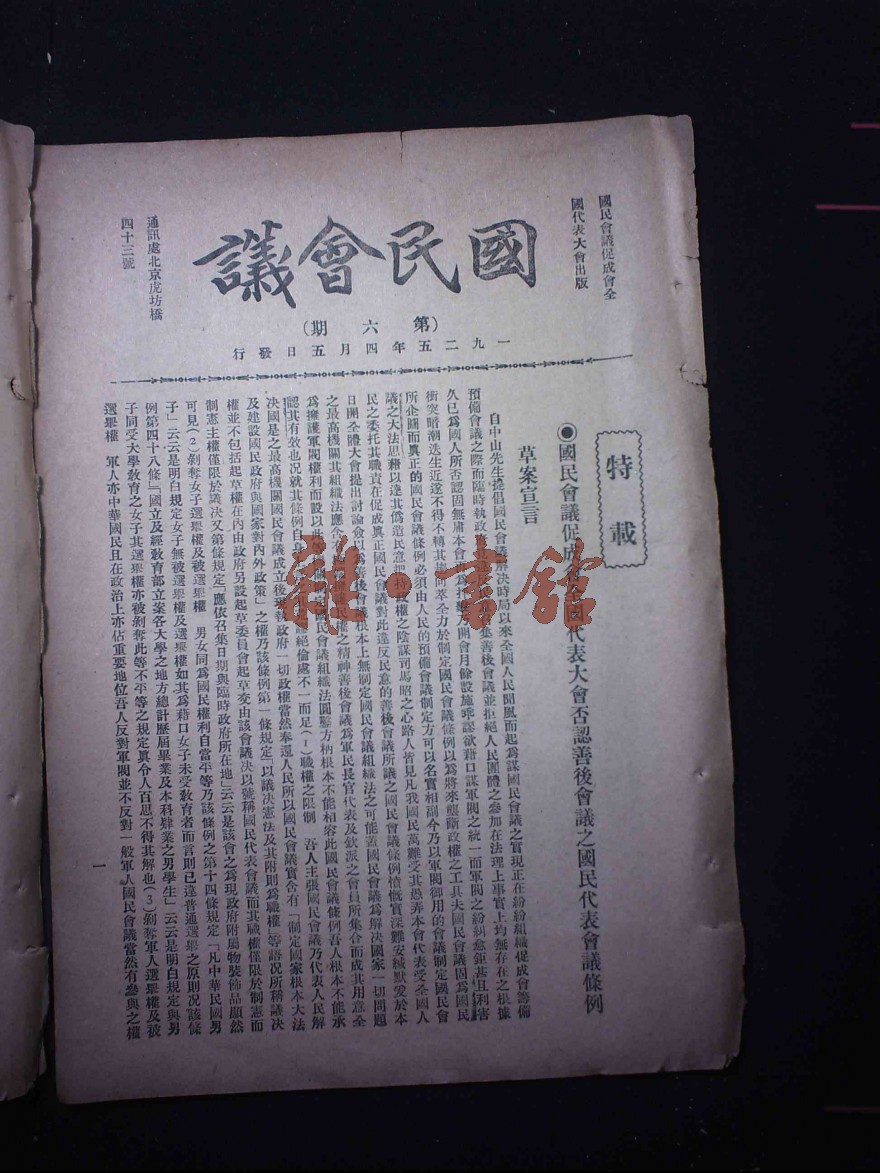 國民會議促成會全
國代表大會出版
國民會議
(第六期)
一九二五年四月五日發行
通訊處北京虎坊橋
四十三號
特載
◉國民會議促成會全國代表大會否認善後會議之國民代表會議條例
草案宣言
自中山先生提倡國民會議解決時局以來全國人民聞風而起爲謀國民會議之實現正在紛紛組織促成會籌備
預備會議之際而臨時執政召集善後會議並拒絕人民團體之參加在法理上事實上均無存在之根據
久已爲國人所否認固無庸本會開會月餘設施乖謬欲藉口謀軍閥之統一而軍閥之紛糾愈鉅甚且利害
衝突暗潮迭生近遂不得不轉其全力於制定國民會議條例以爲將來壟斷政權之工具夫國民會議固爲國民
所企圖而眞正的國民會議條例必須由人民的預備會議制定方可以名實相副今乃以軍閥御用的會議制定國民會
議之大法思藉以達其僞造民意把持政權之陰謀司馬昭之心路人皆見凡我國民萬難受其愚弄本會代表受全國人
民之委托其職責在促成眞正國民會議對此違反民意的善後會議所議之國民會議條例憤慨實深難安緘默爰於本
日開全體大會提出討論僉以爲善後會議根本上無制定國民會議組織法之可能蓋國民會議爲解決國家一切問題
之最高機關其組織法應含有民權之精神善後會議爲軍民長官代表及欽派之會員所集合而成其用意全
爲擁護軍閥權利而設以此等國民會議組織法圓鑿方枘根本不能相容此國民會議條例吾人根本不能承
認其有效也況就其條例自身謬絕倫處不一而足(1)職權之限制 吾人主張國民會議乃代表人民解
決國是之最高機關國民會議成立後現執政府一切政權當然奉還人民所以國民會議實含有「制定國家根本大法
及建設國民政府與國家對內外政策」之權乃該條例第一條規定「以議決憲法及其附則爲職權」等語況所稱議決
權並不包括起草權在內由政府另設起草委員會起草交由該會議決以號稱國民代表會議而其職權僅限於制憲而
制憲主權僅限於議決又第條規定「應依召集日期與臨時政府所在地」云云是該會之爲現政府附屬物裝飾品顯然
可見(2)剝奪女子選舉權及被選舉權 男女同爲國民權利自當平等乃該條例之第十四條規定「凡中華民國男
子」云云是明白規定女子無被選舉權及選舉權如其爲藉口女子未受敎育者而言則已違普通選舉之原則况該條
例第四十八條「國立及經敎育部立案各大學之地方總計歷屆畢業及本科肄業之男學生」云云是明白規定與男
子同受大學敎育之女子其選舉權亦被剝奪此等不平等之規定眞令人百思不得其解也(3)剝奪軍人選舉權及被
選舉權 軍人亦中華國民且在政治上亦佔重要地位吾人反對軍閥並不反對一般軍人國民會議當然有參與之權
一
雜·書館